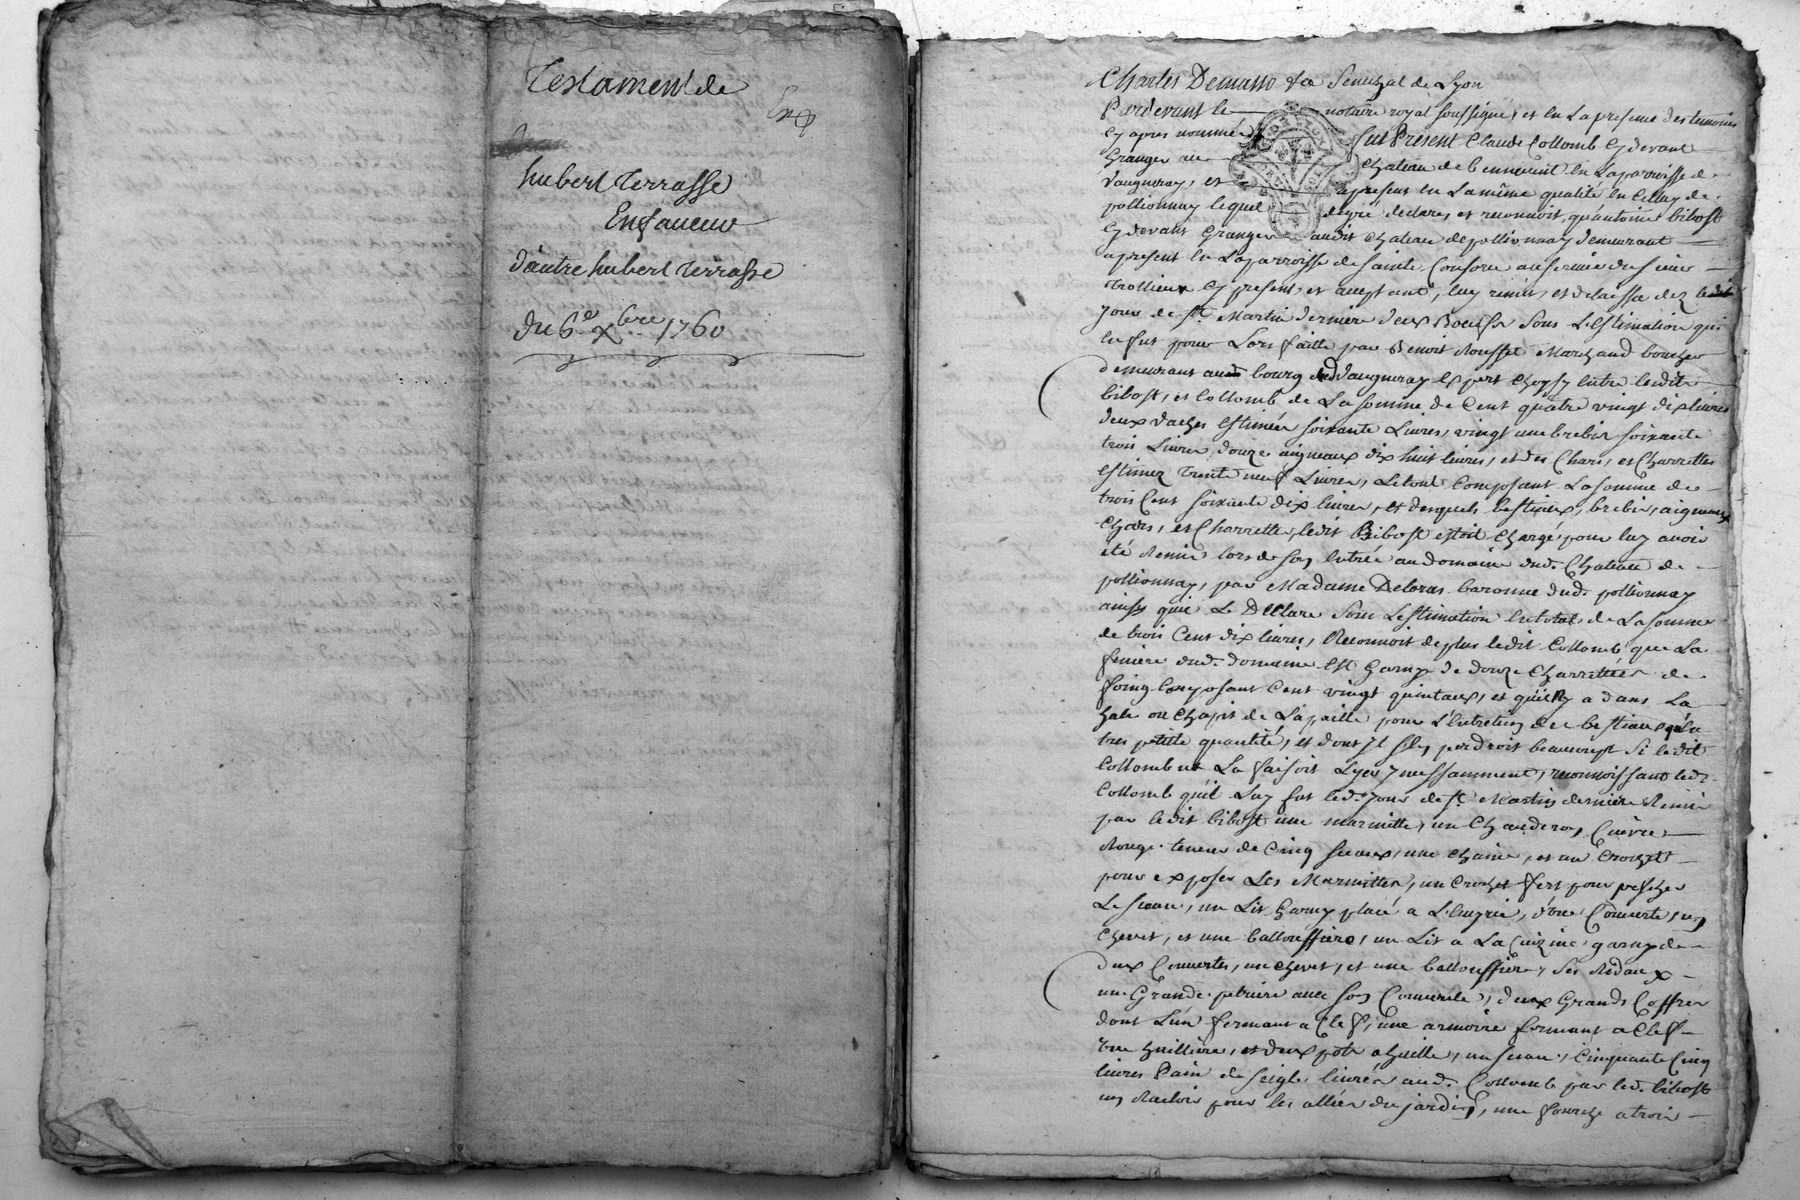 Testament de
hubert Terrasse
En faveur
d'autre hubert Terrasse
du 6e xbre 1760
Charles Demasso Senechal de Lyon
Pardevant le notaire royal soussigné, et en la presence des temoins
cy apres nommés fut Présent Claude Collomb cy devant
Granger au Chateau de Bennevent en la parroisse de
Vaugneray, et apresent en la même qualité en celuy de
pollionnay lequel degré declare, et reconnoit, qu'antoine bibost
cy devant Granger audit Chateau de pollionnay demeurant
apresent en la parroisse de Sainte Consorce au fermie du sieur
trollieux cy present et acceptant, luy remit, et delaissa dez ledit
jour de st. Martin dernier deux Boeufs sous L'estimation qui
en fut pour Lors faitte par Benoit Rousset Marchand boucher
demeurant au bourg de Vaugneray Expert choysy entre lesdits
bibost, et Collomb de La somme de Cent quatre vingt dix livres
deux vaches Estimées soixante Livres, vingt une brebis soixante
trois Livres, douze aigneaux dix huit livres, et des Chars, et Charrettes
estimez trente neuf Livres, Le tout Composant La somme de
trois Cent soixante dix livres, et desquels bestiaux, brebis, aigneaux
chars, et Charrettes, ledit Bibost estoit chargé pour luy avoir
été Remis lors de son entrée au domaine dud. Chateau de
pollionnay, par Madame Deloras baronne dud. pollionnay
ainsy qu'il Le Declare sous L'estimation en total de La somme
de trois Cent dix livres, Reconnoit de plus ledit Collomb que La
feniere dud. domaine Est Garny de douze Charrettées de
foing Composant Cent vingt quintaux, et qu'il y a dans La
hale ou Chapit de La paille pour L'entretien des bestiaux en
tres petitte quantité, et dont il s'en perdroit beaucoup Si ledit
Collomb ne La faisoit Lyer incessamment, reconnoissant led.
Collomb qu'il Luy fut led. jour de st. Martin dernier Remis
par ledit bibost une marmitte, un Chauderon Cuivre
Rouge teneur de Cinq seaux, une chaine, et un Crochet
pour exposer Les Marmittes, un Crochet fert pour pescher
Le seau, un Lit Garny placé a L'ecuyrie, d'une Couverte, un
Chevet, et une balouffiere, un Lit a La Cuizine garny de
deux Couvertes, un chevet, et une balouffiere, Ses Ridaux
une Grande petriere avec son Couvercle, deux Grands Coffres
dont L'un fermant a Clef, une armoire fermant a Clef
une huilliere, et deux pots a huille, un seau, Cinquante Cinq
livres Pain de seigle livrés aud. Collomb par led. bibost
un Racloir pour les allées du jardin, une fourche a trois